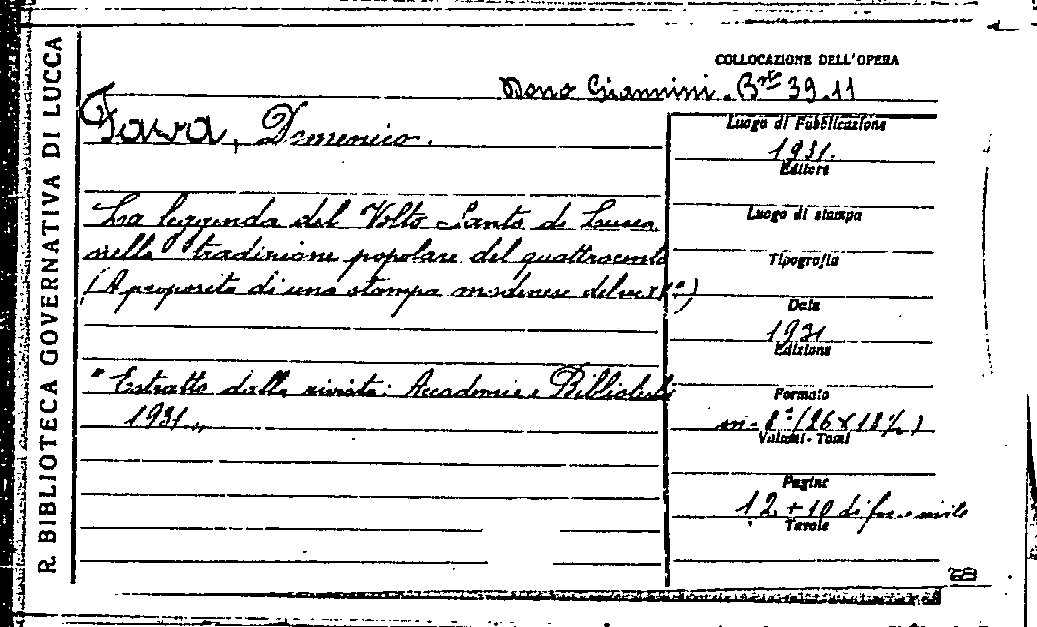 R. BIBLIOTECA GOVERNATIVA DI LUCCA
COLLOCAZIONE DELL'OPERA
Dono Giannini. 39.11
Fava, Domenico.
La leggenda del Volto Santo di Lucca
nella tradizione popolare del quattrocento
(A proposito di una stampa modenese del
"Estratto dalla rivista: Accademie e Biblioteche
1931"
Luogo di Pubblicazione
1931.
Editore
Luogo di stampa
Tipografia
Data
1931
Edizione
Formato
in-8°
Volumi - Tomi
Pagine
12 + 10 di facsimile
Tavole